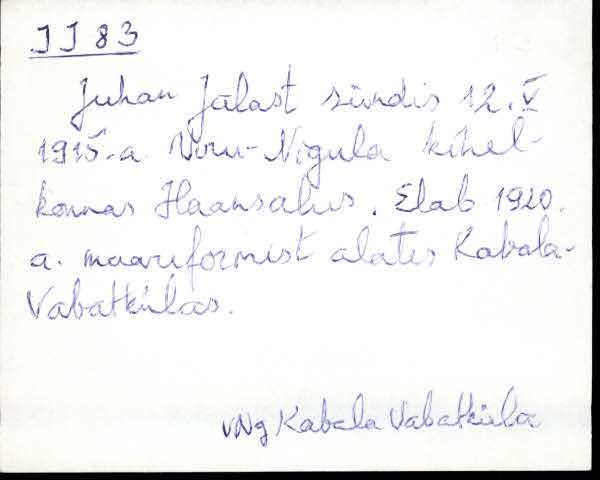 JJ 83
Juhan Jalast sündis 12. V
1915. a. Viru-Nigula kihel-
konnas Haansalus. Elab 1920.
a. maareformist alates Kabala-
Vabatkülas.
VNg Kabala Vabatküla